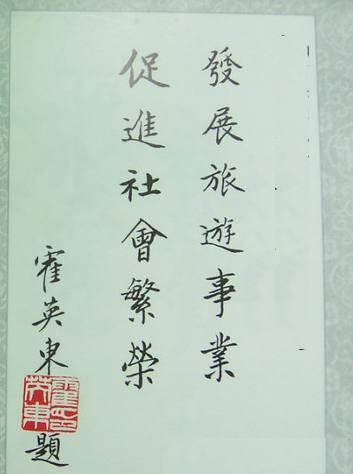 發展旅遊事業
促進社會繁榮
霍英東題
霍英東印